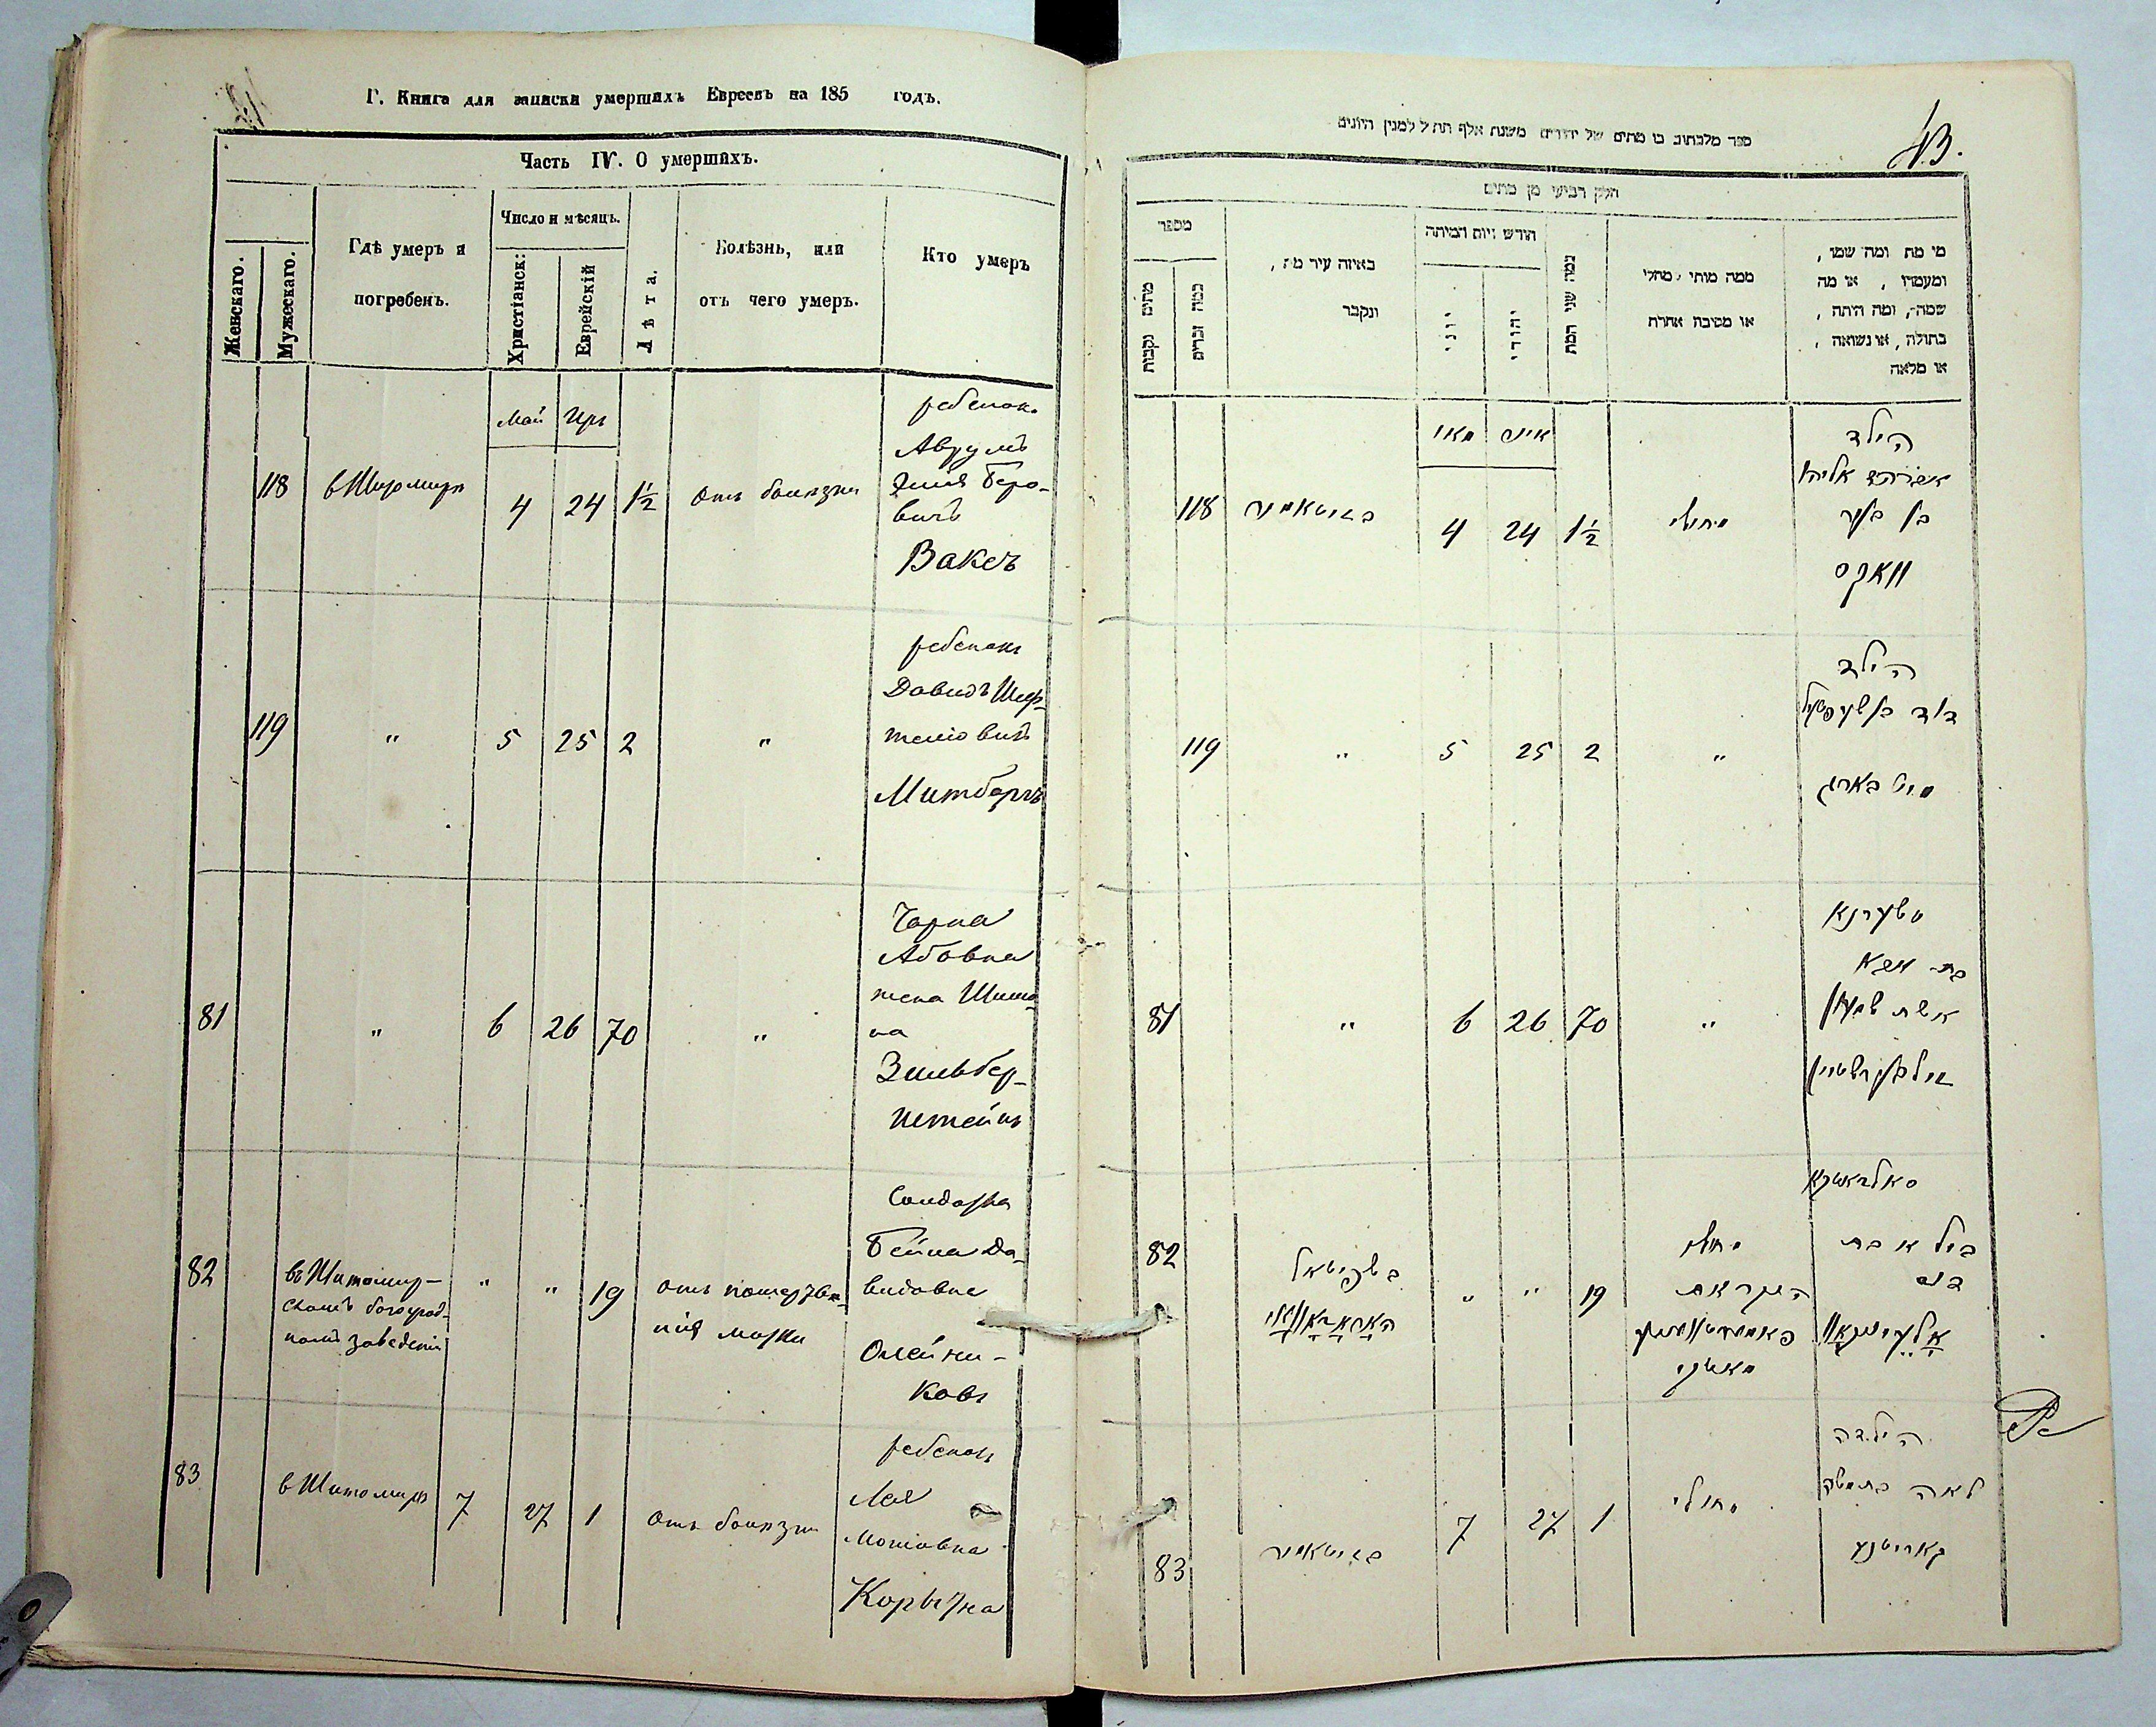 Г. Книга для записки умершихъ Евреевъ на 185 годъ.
Часть IV. О умершихъ.
Женскаго.
Мужескаго.
Гдѣ умеръ и
погребенъ.
Число и мѣсяцъ.
Христіанск:
Еврейскій
Лѣта.
Болѣзнь, или
отъ чего умеръ.
Кто умеръ
Май Иръ
118 в Житомирѣ 4 24 1½ отъ болѣзни
ребенокъ
Аврумъ
Элія Беро-
вичъ
Ваксъ
119 " 5 25 2 "
ребенокъ
Давидъ Шеф-
теліовичъ
Митберъ
81 " 6 26 70 "
Чарна
Абовна
жена Шимо-
на
Зильбер-
штейнъ
82 въ Житомир-
скомъ богоугод-
номъ заведеніи
" " 19
Солдатка
Бейла Да-
видовна
Олейни-
ковъ
83 в Житомирѣ 7 27 1 отъ болѣзни
ребенокъ
Лея
Мошовна
ספר מלכתוב בו מתים של יהודים משנת אלף תת"ל למנין היונים
43.
חלק רביעי מן מתים
מספר
מתים נקבות
כמה זכרים
באיזה עיר מת,
ונקבר
חודש ויום המיתה
יוני
יהודי
כמה שני המת
ממה מותו, מחלי
או מסיבה אחרת
מי מת ומה שמו,
ומעמדו, או מה
שמה, ומה היתה,
בתולה, או נשואה,
או מלאה
מאי אייר
118 בזיטאמיר 4 24 1½ מחולי
הילד
אברהם אליהו
בן בער
וואקס
119 " 5 25 2 "
הילד
דוד בן שעפטיל
מיטבארג
81 " 6 26 70 "
טשערנא
בת אבא
אשת שמעון
זילבערשטיין
82 " " 19 מחולי
סאלדאטקא
בילא בת
דוד
83 בזיטאמיר 7 27 1 מחולי
הילדה
לאה בת משה